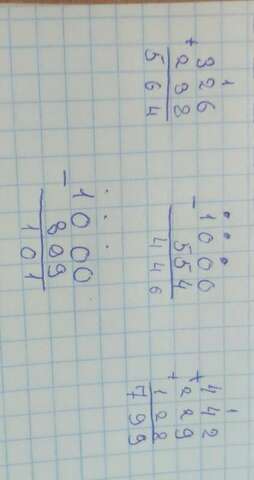 1
326
+ 238
564
1000
- 554
446
1
442
+ 229
+ 128
799
1000
- 899
101